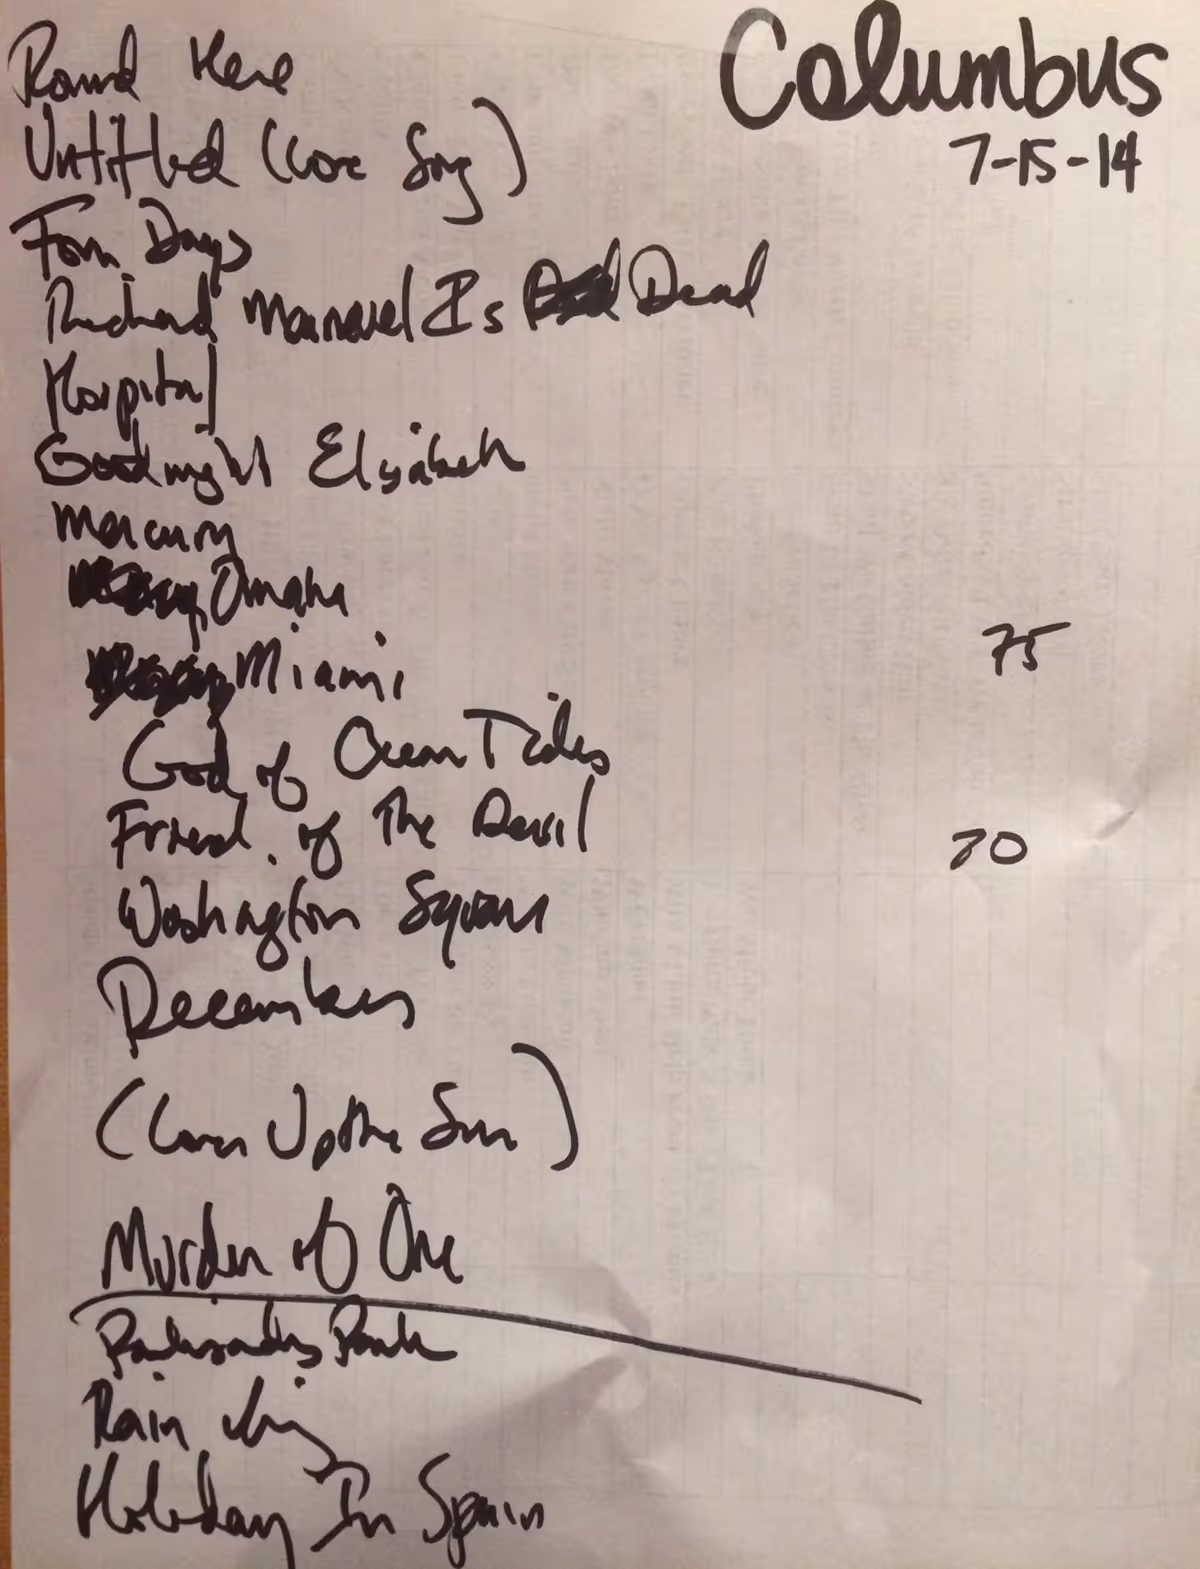 Columbus
7-15-14
Round Here
Untitled (Love Song)
Four Days
Richard Manuel Is Dead
Hospital
Goodnight Elisabeth
Mercury
Omaha
Miami
75
God of Ocean Tides
Friend of The Devil
70
Washington Square
December
(Cover Up the Sun)
Murder of One
Palisades Park
Rain King
Holiday In Spain